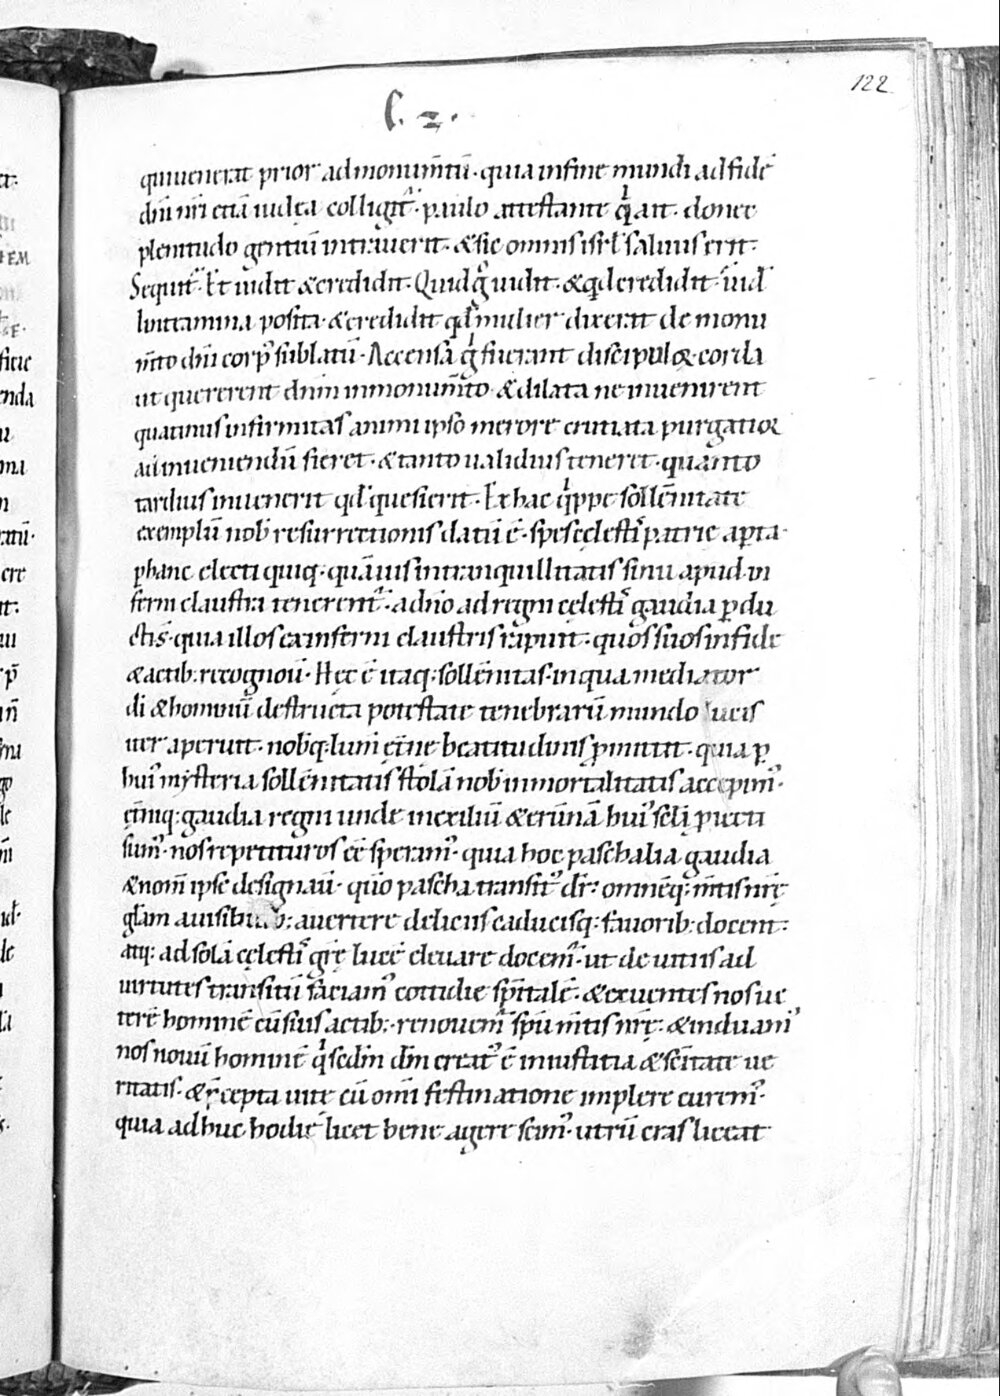 122
L. 2.
quiuenerat prior admonum̄tū. quia infine mundi adfidē
dn̄i nr̄i etiā iudęa colligit᷑. paulo attestante qͥ ait. donec
plenitudo gentiū intrauerit. & sic omnis isrl̄ saluus erit.
Sequit᷑. Et uidit & credidit. Quid gͦ uidit. & qd̄ credidit. uid̄
linteamina posita. & credidit qd̄ mulier dixerat de monu
m̄to dn̄i corpꝰ sublatū. Accensa gͦ fuerant discipuloꝝ corda
ut quererent dn̄m inmonum̄to. & dilata ne inuenirent
quatinus infirmitas animi ipso merore cruciata purgatior
ad inueniendū fieret. & tanto ualidius teneret. quanto
tardius inuenerit qd̄ quesierit. Ex hac qͥppe sollēnitate
exemplū nob̄ resurrectionis datū ē. spes cęlestis patrie apta.
ꝑ hanc electi quiq;. quāuis intranquillitatis sinu apud in
ferni claustra tenerent᷑. adn̄o ad regni cęlestis gaudia ꝑdu
cti s̄. quia illos exinferni claustris rapuit. quos suos infide
& actib; recognou̅. Hęc ē itaq; sollēnitas. in qua mediator
di & hominū destructa potestate tenebrarū mundo lucis
iter aperuit. nobq; lum̄ ęt̄ne beatitudinis ꝓmittit. quia ꝑ
huiꝰ mysteria sollēnitatis stolā nob̄ inmortalitatis accepimꝰ.
ęt̄niq; gaudia regni unde inexiliū & erūnā huiꝰ scl̄i ꝓiecti
sumꝰ. nos repetituros eē speramꝰ. quia hoc paschalia gaudia
& nom̄ ipse designau̅. quo pascha transitꝰ dr̄. omneq; m̄tis nr̄ę
auertere deliciis caducisq; fauorib; docent.
atq; ad solā cęlestis gr̄ę lucē eleuare docem᷑. ut de uitiis ad
uirtutes transitū faciamꝰ cottidie spīt̄alē. & exuentes nos ue
terē hominē cū suis actib;. renouem᷑ spū m̄tis nr̄ę. & induamꝰ
nos nouū hominē qͥ scdm̄ dm̄ creatꝰ ē iniustitia & sc̄itate ue
ritatis. & p̄cepta uite cū omī festinatione implere curemꝰ.
quia adhuc hodie licet bene agere scimꝰ. utrū cras liceat